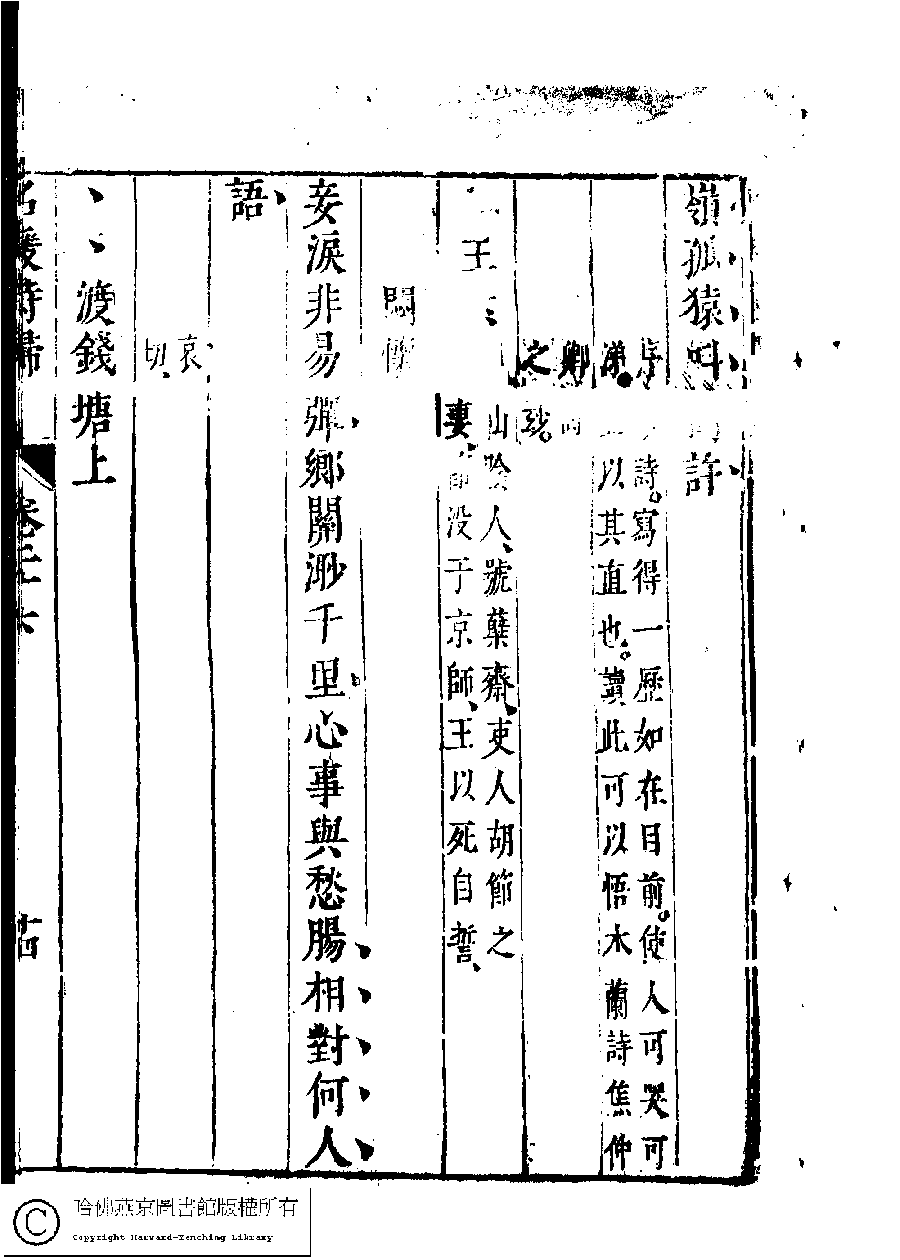 嶺孤猿叫 許
詩寫得一歷如在目前使人可哭可
涕 以其直也讀此可以悟木蘭詩焦仲
卿
之 戟
王
山陰人號蘗齋吏人胡節之
妻節没于京師王以死自誓
悶懷
妾淚非易彈鄉關渺千里心事與愁腸相對何人
語
哀
切
渡錢塘上
名媛詩歸
卷二十六
古
哈佛燕京圖書館版權所有
Copyright Harvard-Yenching Library